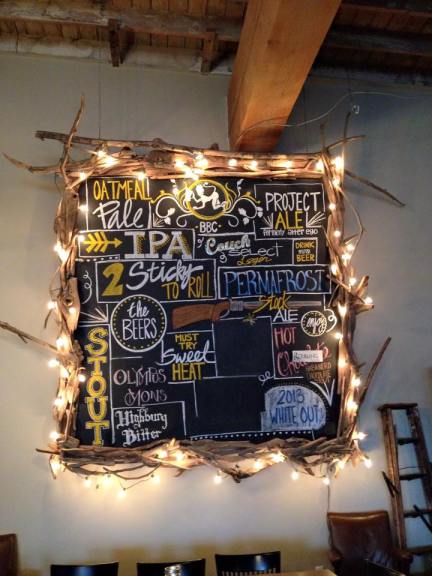 OATMEAL
Pale
BBC
PROJECT
ALE
formerly alter ego
IPA
Couch
Select
Lager
DRINK
BEER
2 Sticky
TO ROLL
PERNAFROST
Stock
ALE
the
BEERS
enjoy
MUST
TRY
Sweet
HEAT
HOT
STOUT
OLYMPUS
MONS
Highbury
Bitter
2013
WHITE OUT